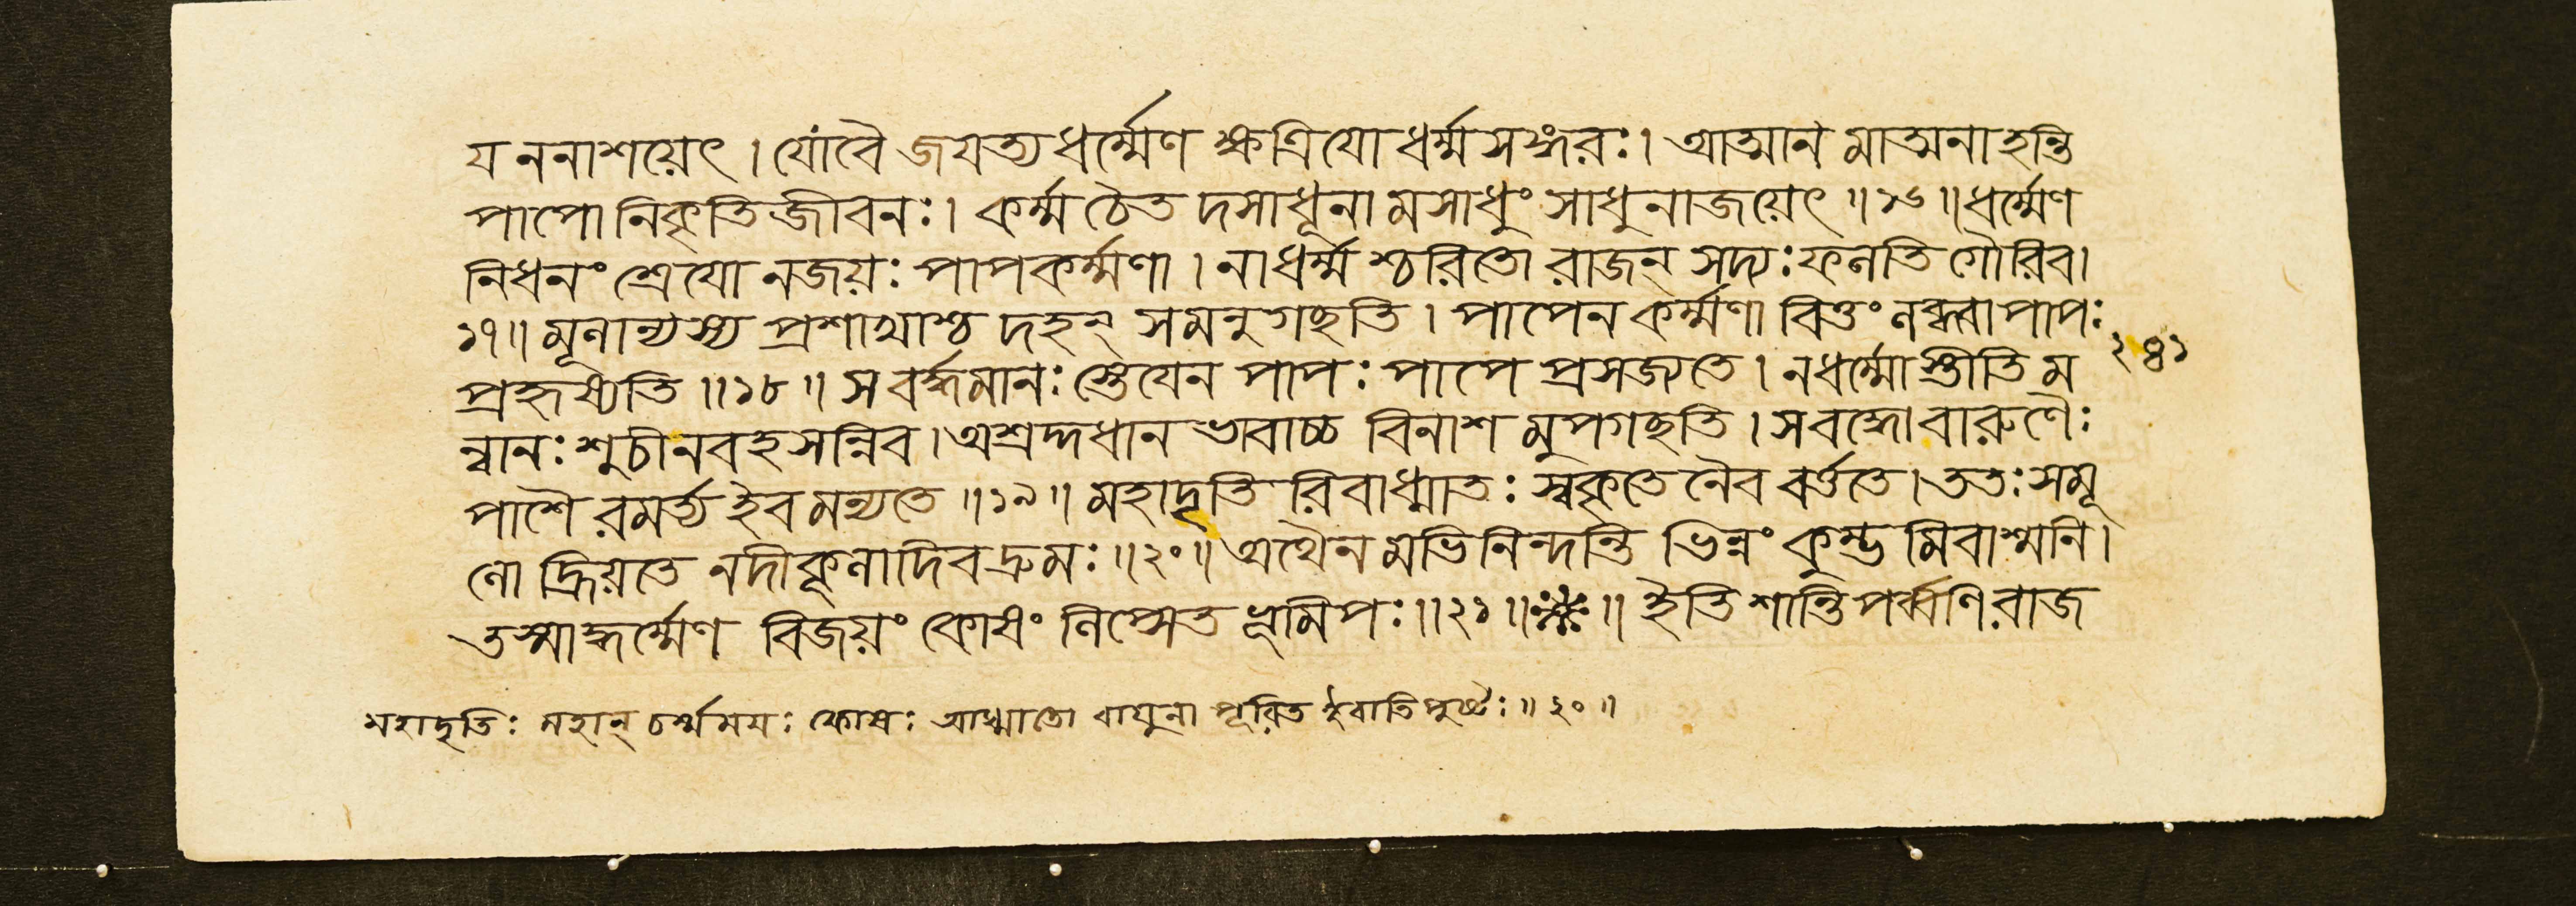 য ননাশয়েৎ । যোবৈ জযত্যধর্ম্মেণ ক্ষত্রিযো ধর্ম্মসঙ্গরঃ । আত্মান মাত্মনা হন্তি
পাপো নিকৃতি জীবনঃ । কর্ম্ম চৈত দসাধূনা মসাধুং সাধুনা জয়েৎ ॥ ১৬ ॥ ধর্ম্মেণ
নিধনং শ্রেযো নজয়ঃ পাপকর্ম্মণা । নাধর্ম্ম শ্চরিতো রাজন্ সদ্যঃ ফলতি গৌরিব ।
১৭ ॥ মূলান্যস্য প্রশাখাশ্চ দহন্ সমনুগচ্ছতি । পাপেন কর্ম্মণা বিত্তং লব্ধ্বা পাপঃ
প্রহৃষ্যতি ॥ ১৮ ॥ স বর্দ্ধমানঃ স্তেযেন পাপঃ পাপে প্রসজ্যতে । নধর্ম্মোস্তীতি ম
২৪১
ন্বানঃ শুচীনবহসন্নিব । অশ্রদ্দধান ভাবাচ্চ বিনাশ মুপগচ্ছতি । সবদ্ধো বারুণৈঃ
পাশৈ রমর্ত্য ইব মন্যতে ॥ ১৯ ॥ মহাদৃতি রিবাধ্মাতঃ স্বকৃতে নৈব বর্ত্ততে । ততঃ সমূ
লো দ্ধ্রিয়তে নদীকূলাদিব দ্রুমঃ ॥ ২০ ॥ অথৈন মভিনিন্দন্তি ভিন্নং কুম্ভ মিবাশ্মনি ।
তস্মাদ্ধর্ম্মেণ বিজয়ং কোষং লিপ্সেত ভূমিপঃ ॥ ২১ ॥ ❈ ॥ ইতি শান্তিপর্ব্বণি রাজ
মহাদৃতিঃ মহান্ চর্ম্মময়ঃ কোষঃ আধ্মাতো বাযুনা পূরিত ইবাতিপুষ্টঃ ॥ ২০ ॥